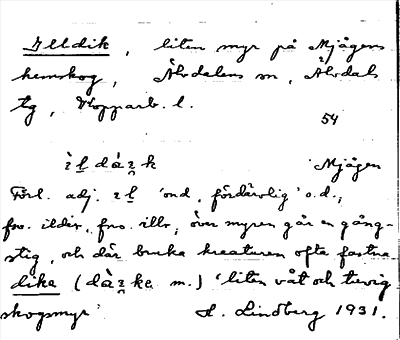 Illdik, liten myr på Mjågens
hemskog, Älvdalens sn, Älvdals
tg, Kopparb. l.
54
ìl̠ dá̀ɩ̯k Mjågen
Förl. adj. ɩl̠ 'ond, fördärvlig' o.d.;
fvn. illr; över myren går en gång-
stig, och där bruka kreaturen ofta fastna
dike (dà̀ɩ̯ke m.) 'liten våt och tuvig
skogsmyr' H. Lindberg 1931.